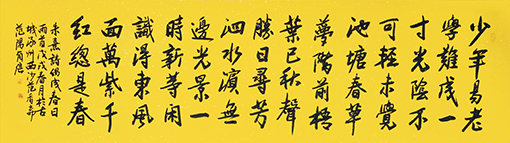 少年易老
學難成一
寸光陰不
可輕未覺
池塘春草
夢階前梧
葉已秋聲
勝日尋芳
泗水濱無
邊光景一
時新等閒
識得東風
面萬紫千
紅總是春
朱熹詩偶成春日
兩首戊戌春月於古